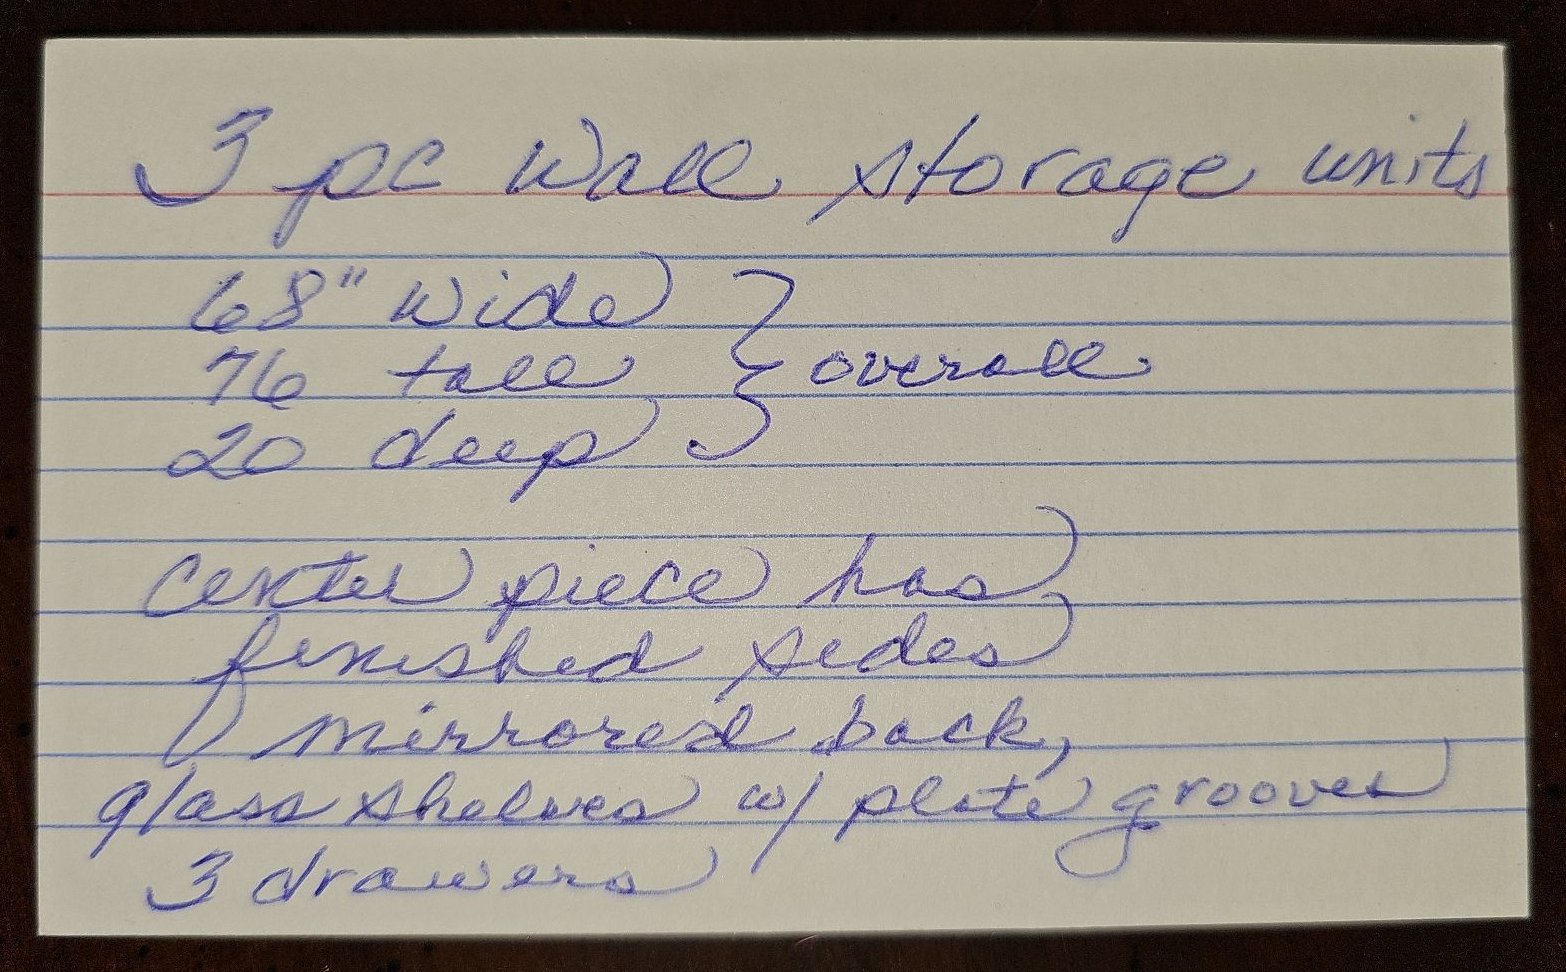 3 pc wall storage units
68" wide
76 tall } overall
20 deep
center piece has
finished sides
mirrored back,
glass shelves w/ plate grooves
3 drawers